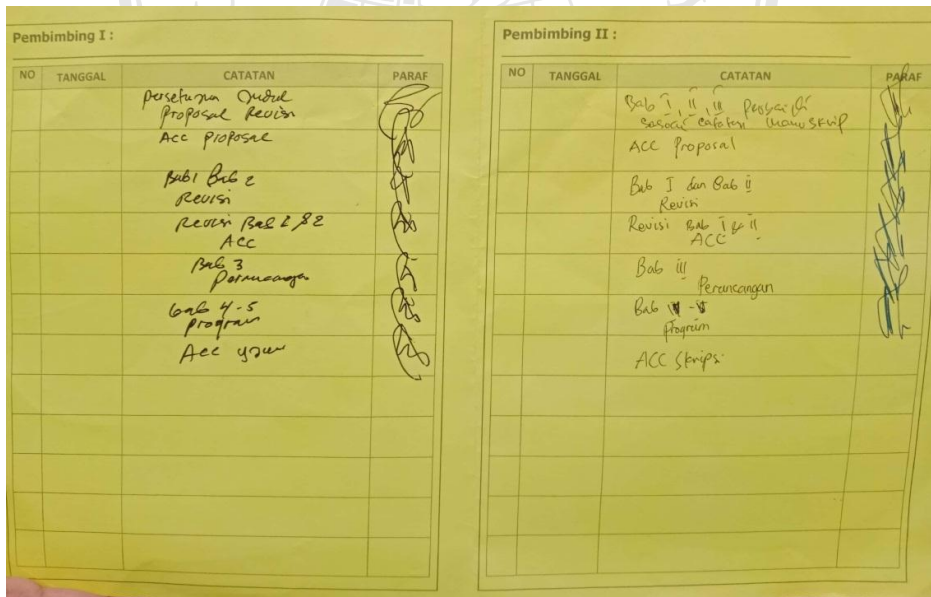 Pembimbing I :
NO TANGGAL CATATAN PARAF
Persetujuan Judul
Proposal Revisi
Acc Proposal
Bab 1 Bab 2
Revisi
Revisi Bab 1 & 2
Acc
Bab 3
Perancangan
bab 4-5
program
Acc
Pembimbing II :
NO TANGGAL CATATAN PARAF
Bab I, II, III
sesuai catatan manuskrip
ACC Proposal
Bab I dan Bab II
Revisi
Revisi Bab I II
ACC
Bab III
Perancangan
Bab
Program
ACC Skripsi